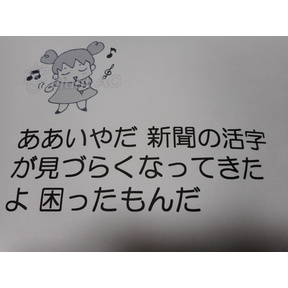 ああいやだ 新聞の活字
が見づらくなってきた
よ 困ったもんだ